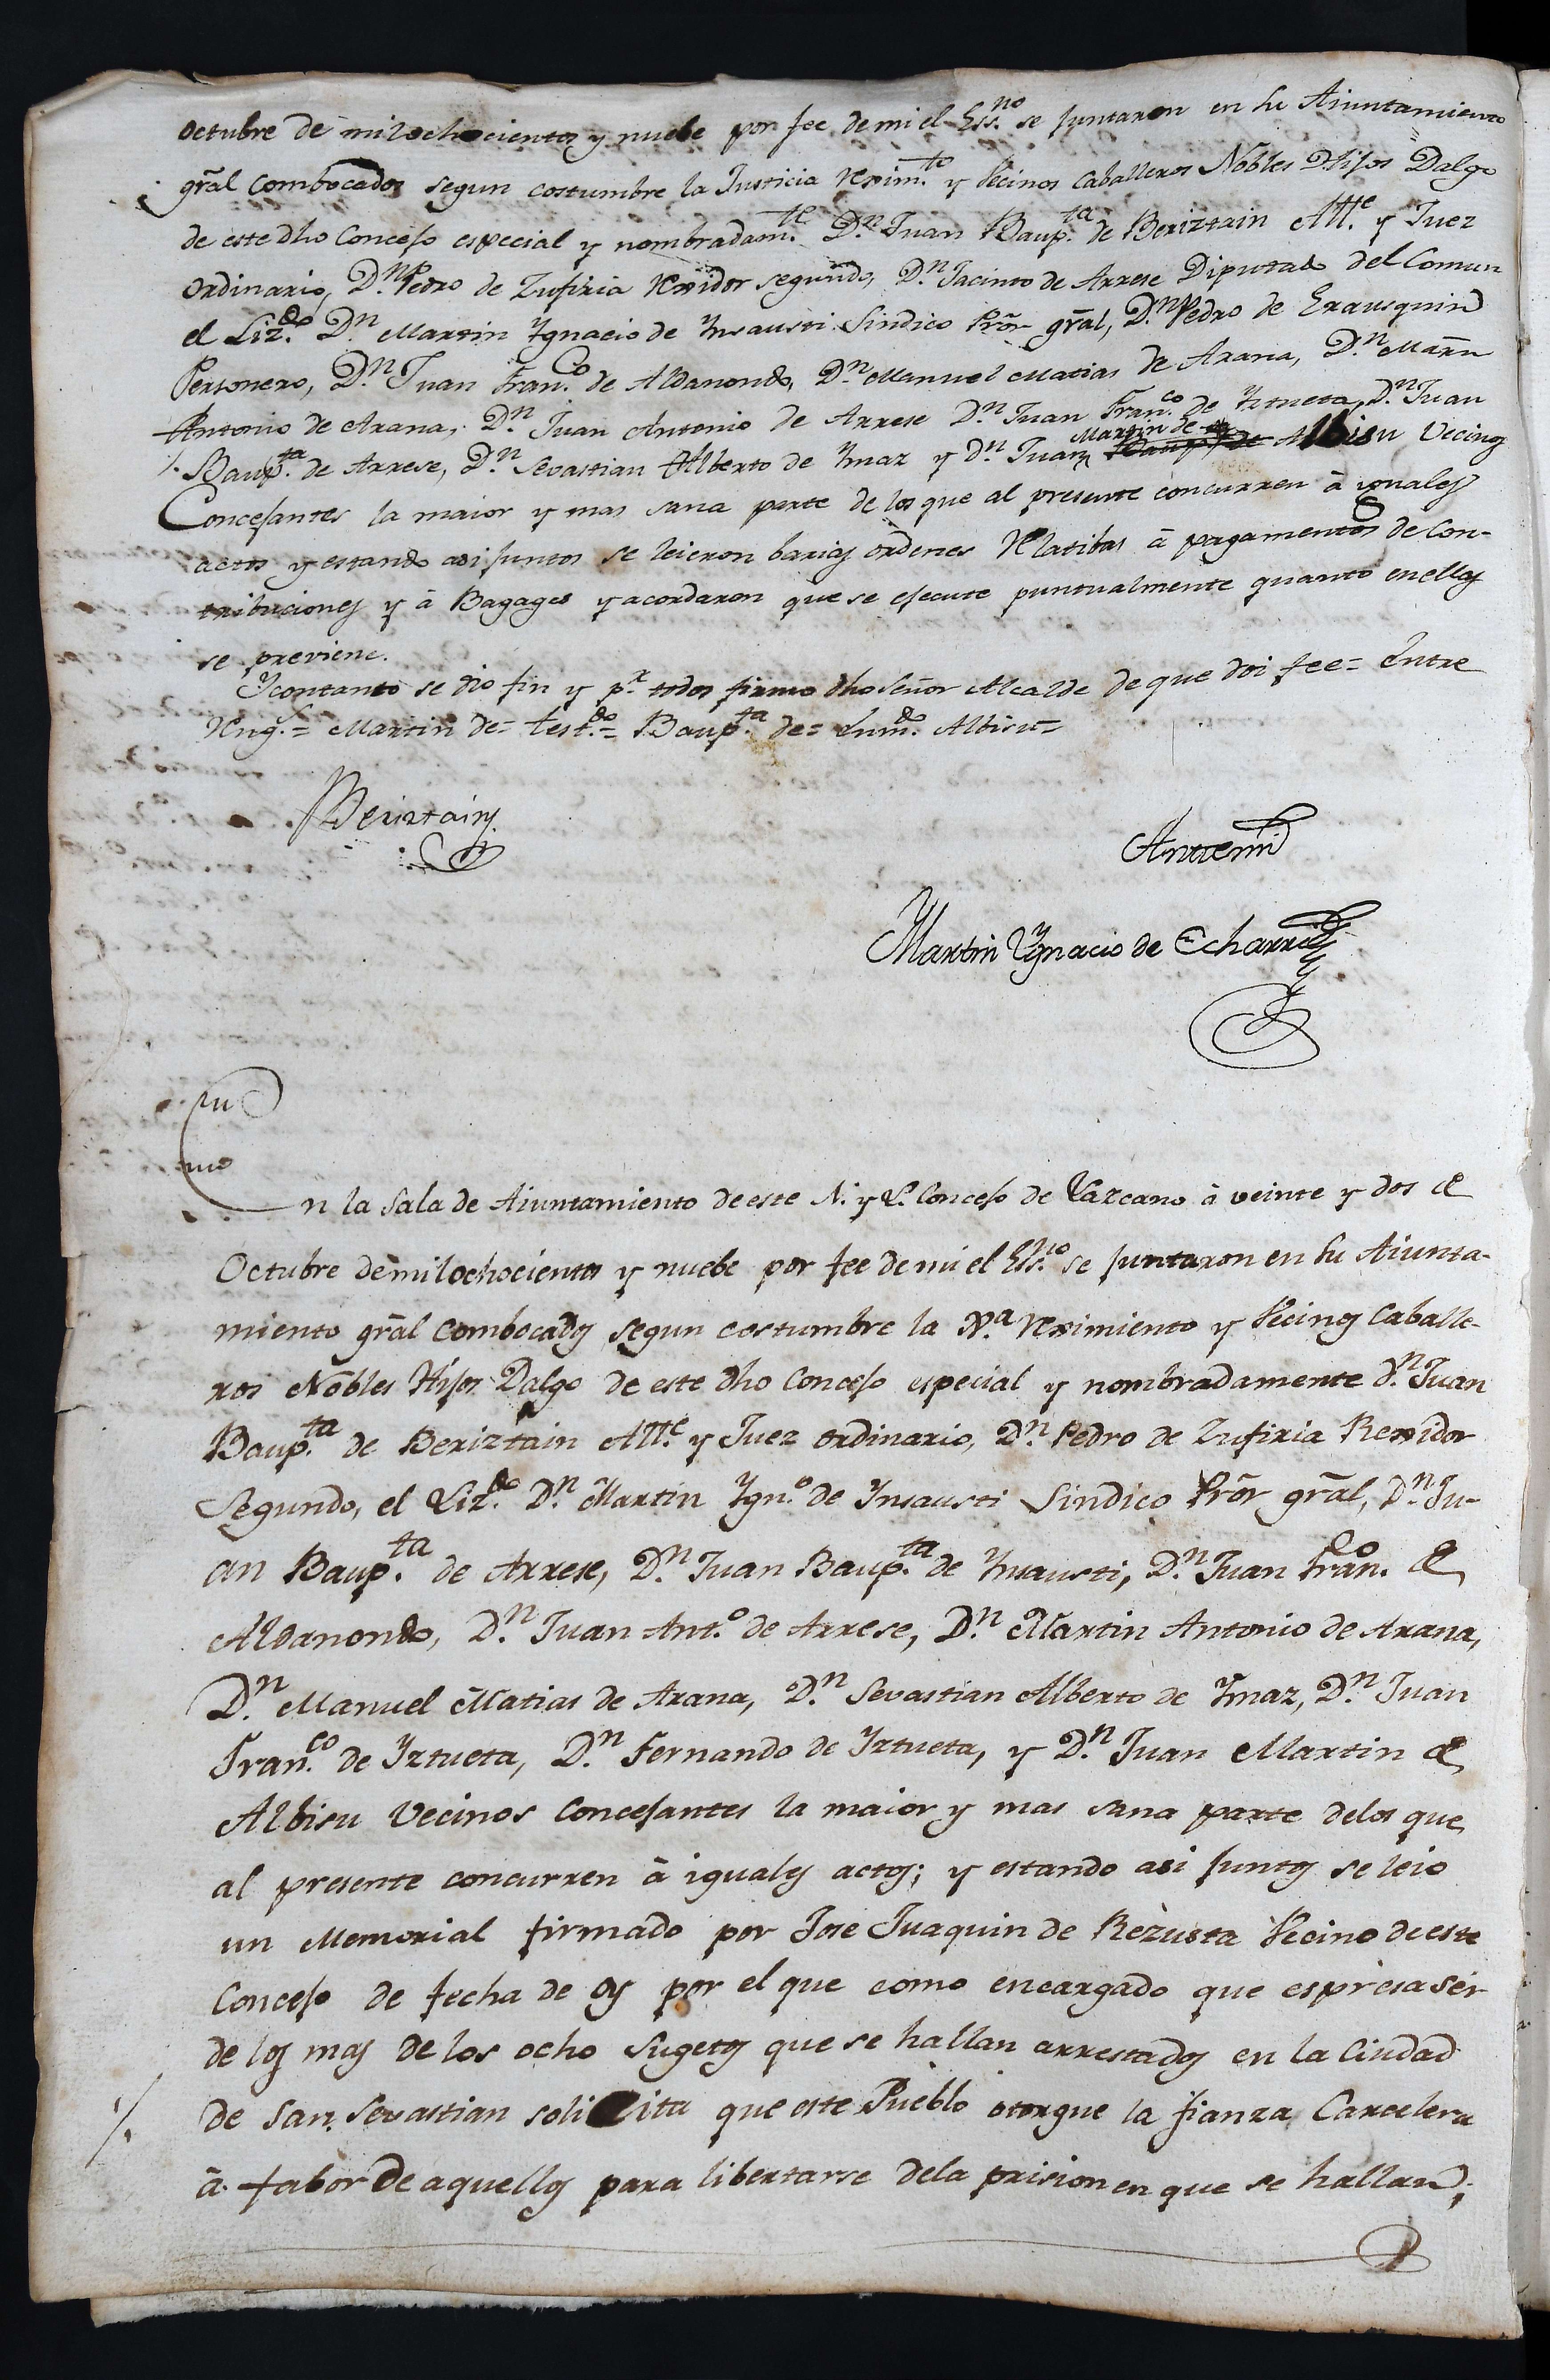 octubre de mil ochocientos y nuebe por fee de mi el Ess.no se juntaron en su Aiuntamiento
grãl combocados segun costumbre la Justicia Reximto y Vecinos Caballeros Nobles Hijos Dalgo
de este dho Concejo especial y nombradam.te D.n Juan Baup.ta de Beriztain Alle. y Juez
ordinario, D.n Pedro de Zufiria Rexidor segundo, D.n Jacinto de Arrese Diputado del Comun
el Liz.do D.n Martin Ygnacio de Ynsausti Sindico Prõr grãl, D.n Pedro de Erausquin
Personero, D.n Juan Fran.co de Aldanondo, D.n Manuel Matias de Arana, D.n Martn
Antonio de Arana, D.n Juan Antonio de Arrese D.n Juan Fran.co de Yztueta, D.n Juan
Baup.ta de Arrese, D.n Sevastian Alberto de Ymaz y D.n Juan Martin de Albisu Vecinos
Concejantes la maior y mas sana parte de los que al presente concurren à yguales
actos y estando asi juntos se leieron barias ordenes Relatibas à pagamentos de Con-
tribuciones y à Bagages y acordaron que se ejecute puntualmente quanto en ellas
se previene.
Y contanto se dio fin y p.r todos firmo dho Señor Alcalde de que doi fee= Entre
Reng.s= Martin de= test.do= Baup.ta de= Enm.do Albisu=
Beriztain
Antemi
Martin Ygnacio de Echarri
En la Sala de Aiuntamiento de este N. y L. Concejo de Lazcano à veinte y dos de
Octubre de mil ochocientos y nuebe por fee de mi el Ess.no se juntaron en su Aiunta-
miento grãl combocados segun costumbre la Jus.a Reximiento y Vecinos Caballe-
ros Nobles Hijos Dalgo de este dho Concejo especial y nombradamente d.n Juan
Baup.ta de Beriztain Alle. y Juez ordinario, D.n Pedro de Zufiria Rexidor
Segundo, el Liz.do D.n Martin Ygn.o de Ynsausti Sindico Prõr grãl, D.n Ju-
an Baup.ta de Arrese, D.n Juan Baup.ta de Ynsausti, D.n Juan Fran.co de
Aldanondo, D.n Juan Ant.o de Arrese, D.n Martin Antonio de Arana,
D.n Manuel Matias de Arana, D.n Sevastian Alberto de Ymaz, D.n Juan
Fran.co de Yztueta, D.n Fernando de Yztueta, y D.n Juan Martin de
Albisu Vecinos Concejantes la maior y mas sana parte delos que
al presente concurren à iguales actos; y estando asi juntos se leio
un Memorial firmado por Jose Juaquin de Rezusta Vecino de este
Concejo de fecha de oy por el que como encargado que espresa ser
de los mas de los ocho Sugetos que se hallan arrestados en la Ciudad
de San Sevastian solicita que este Pueblo otorgue la fianza Carcelera
à fabor de aquellos para libertarse dela prision en que se hallan;